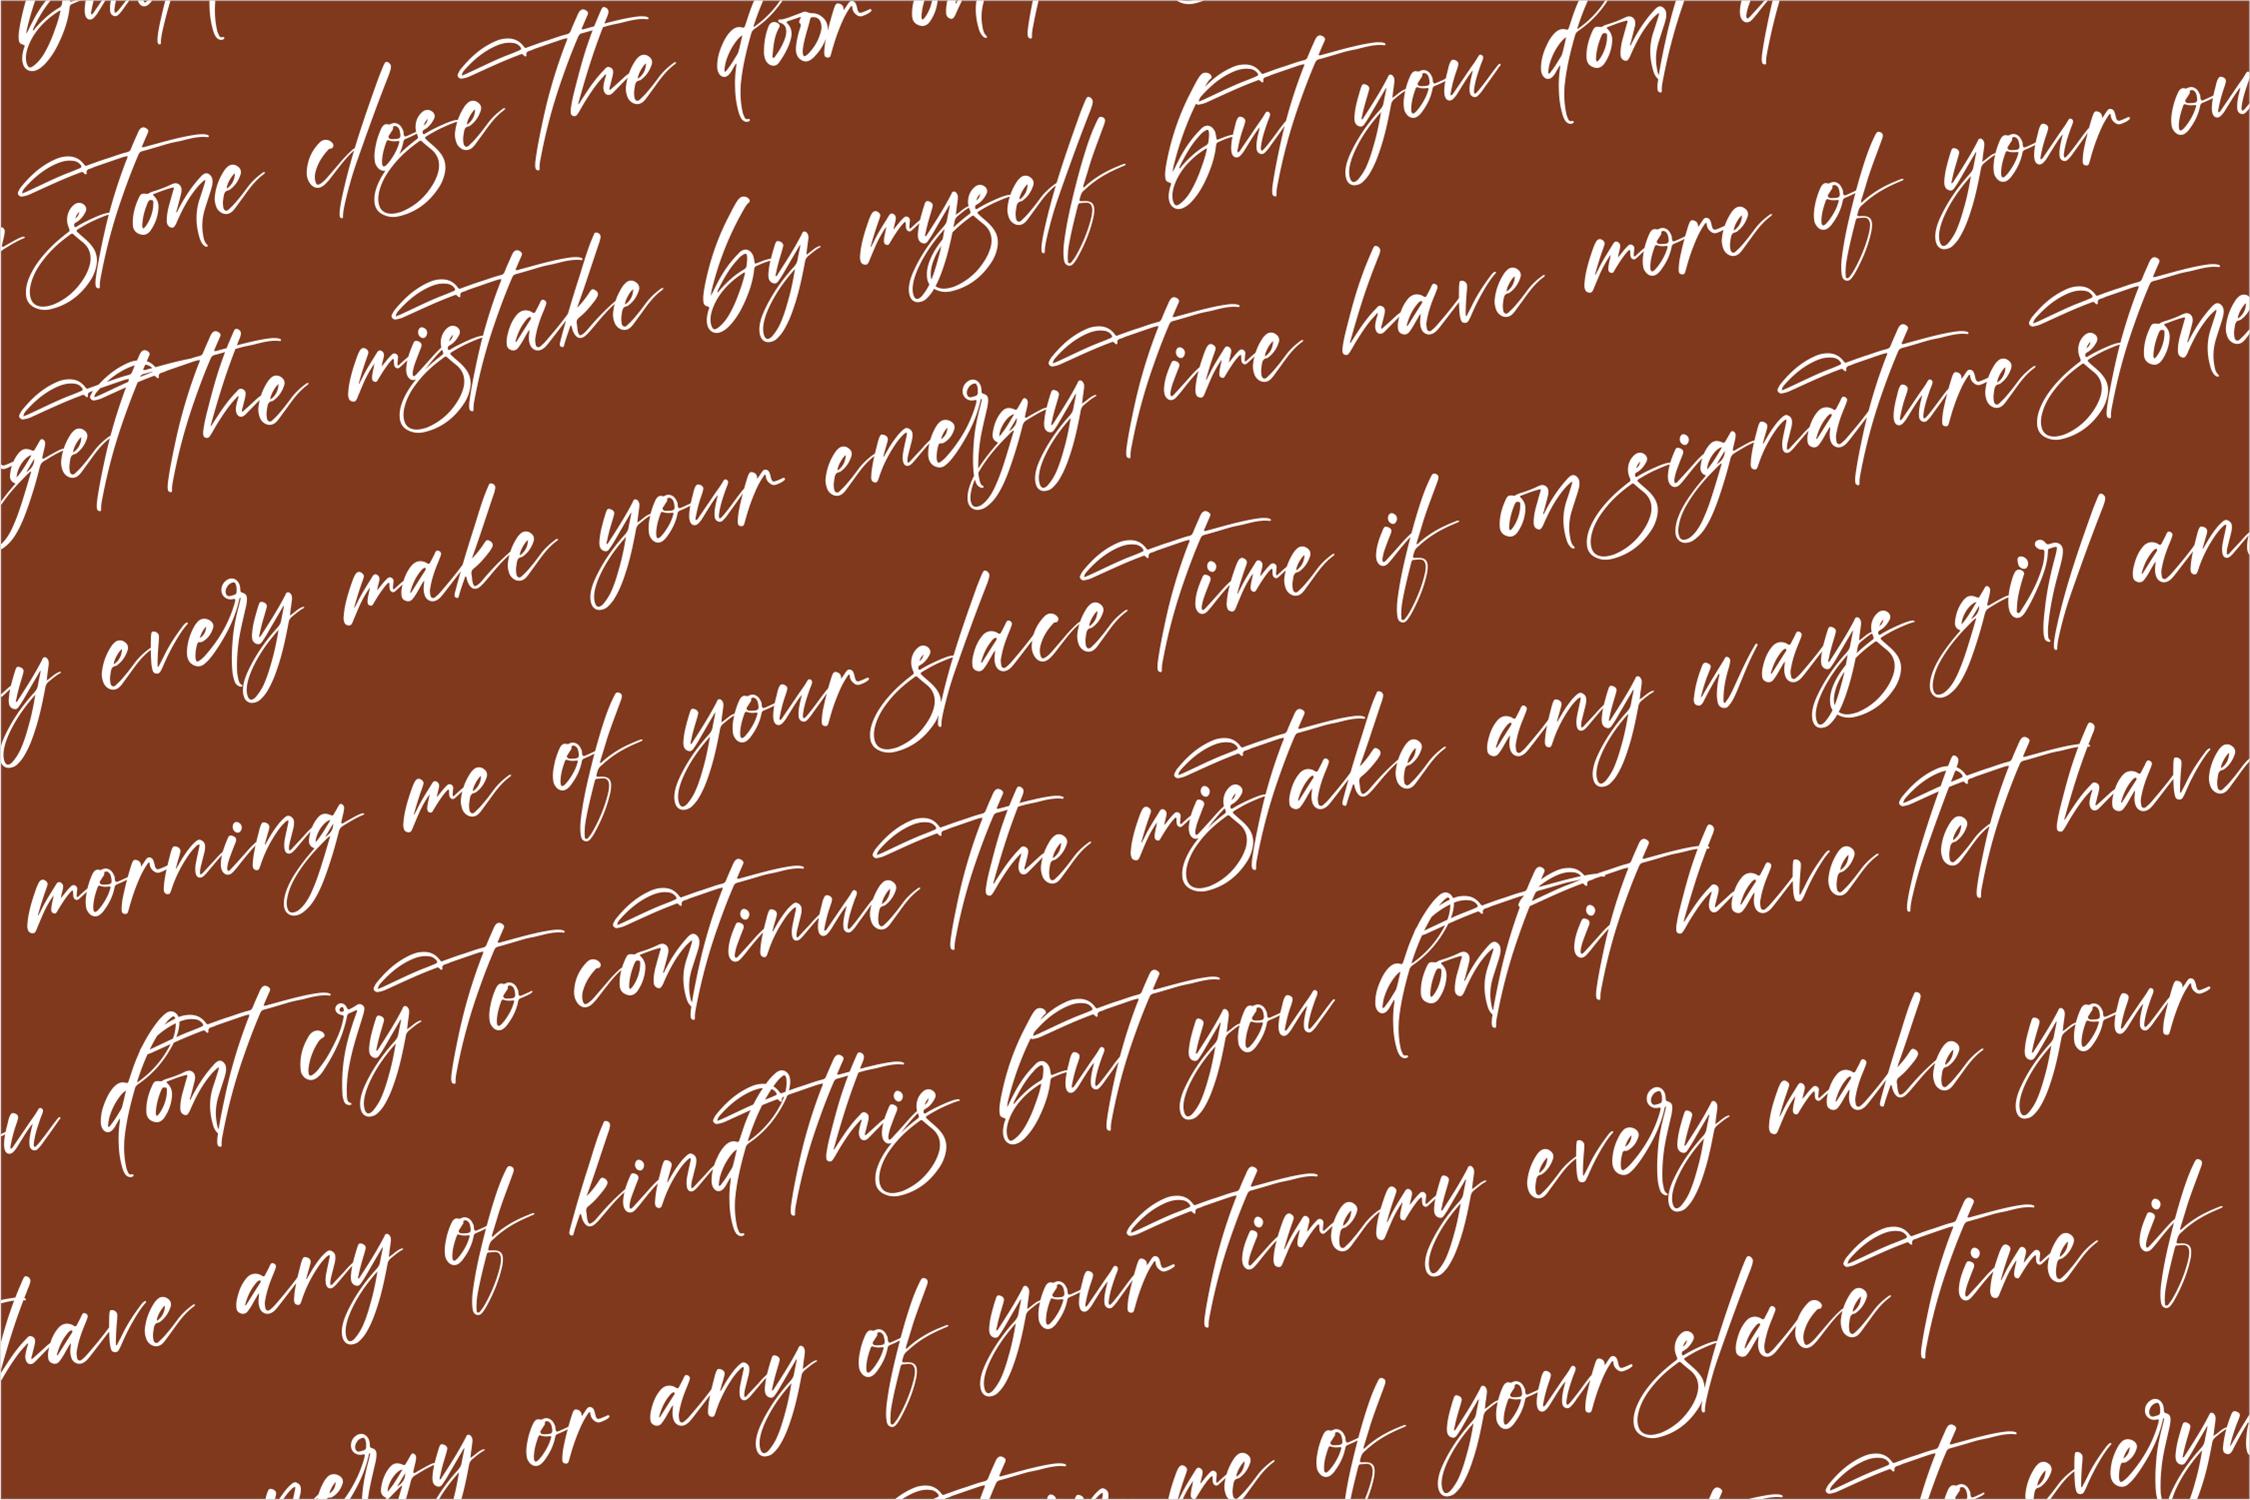 stone close the door
get the mistake by myself but you dont
every make your energy time have more of your
morning me of your slace time if on signature stone
dont cry to continue the mistake any ways girl
have any of kind this but you dont it have tet have
nergy or any of your timemy every make your
me of your slace time if
to